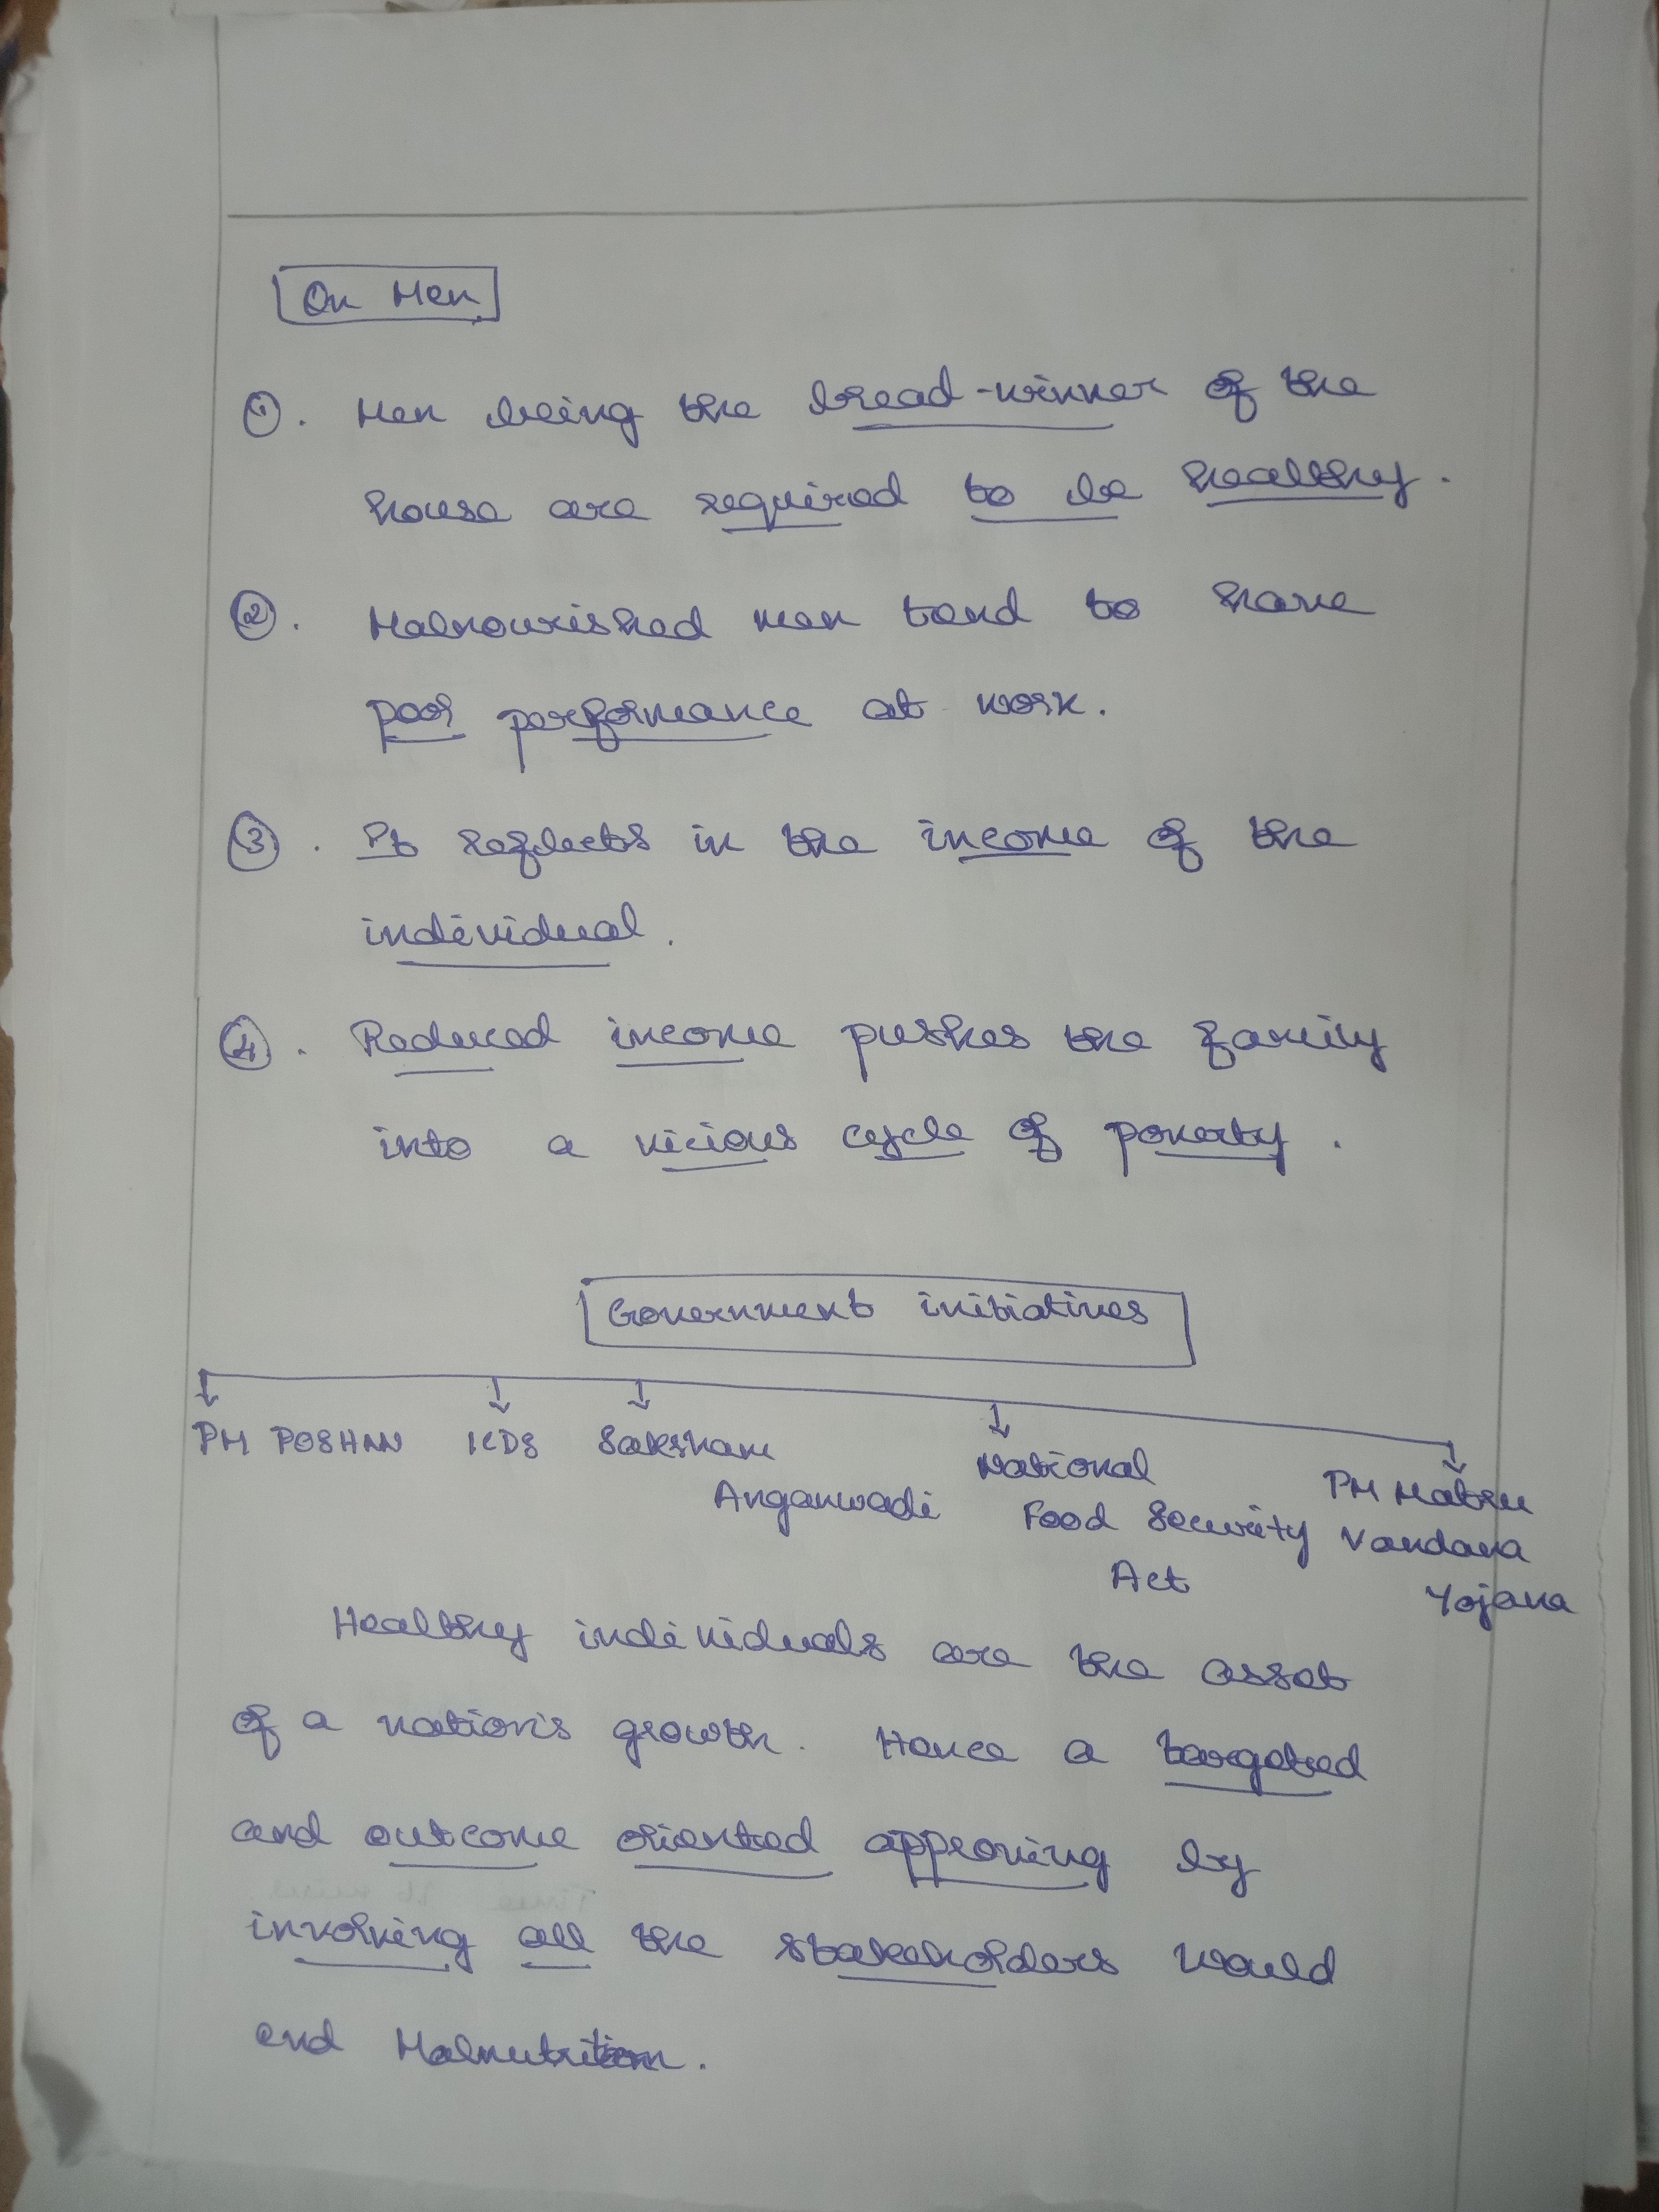 On Men
①. Men being the bread-winner of the
house are required to be healthy.
②. Malnourished men tend to have
poor performance at work.
③. It reflects in the income of the
individual.
④. Reduced income pushes the family
into a vicious cycle of poverty.
Government initiatives
PM POSHAN ICDS Saksham Anganwadi National Food Security Act PM Matru Vandana Yojana
Healthy individuals are the asset
of a nation's growth. Hence a targeted
and outcome oriented approving by
involving all the stakeholders would
end Malnutrition.